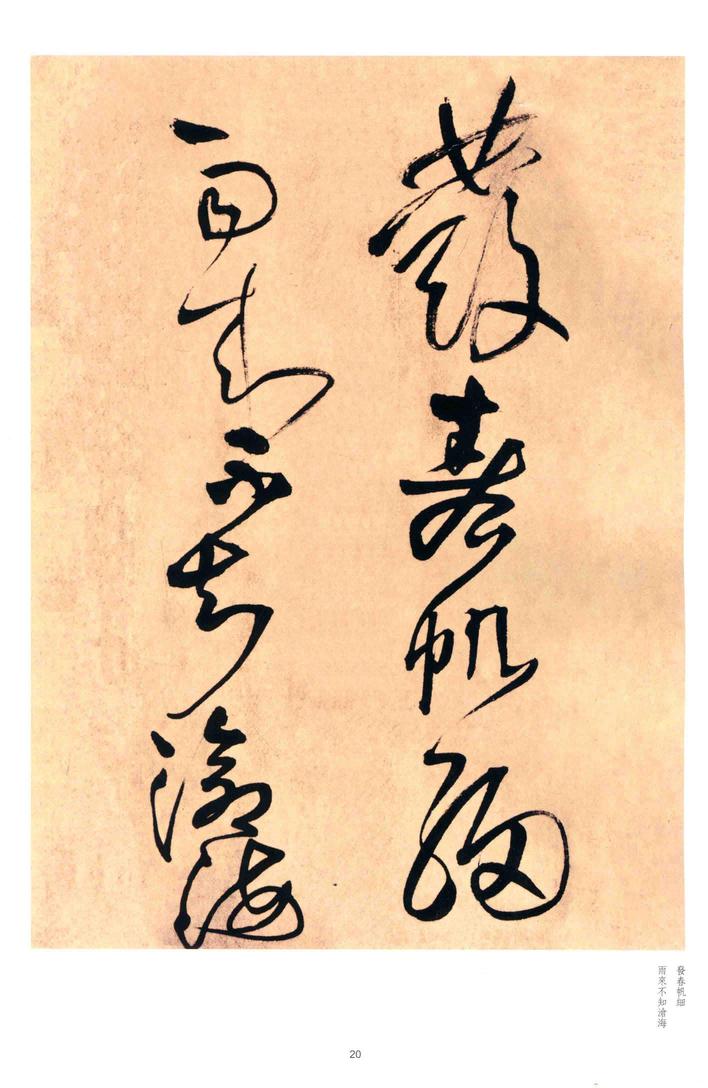 發春帆細
雨來不知滄海
發春帆細
雨來不知滄海
20